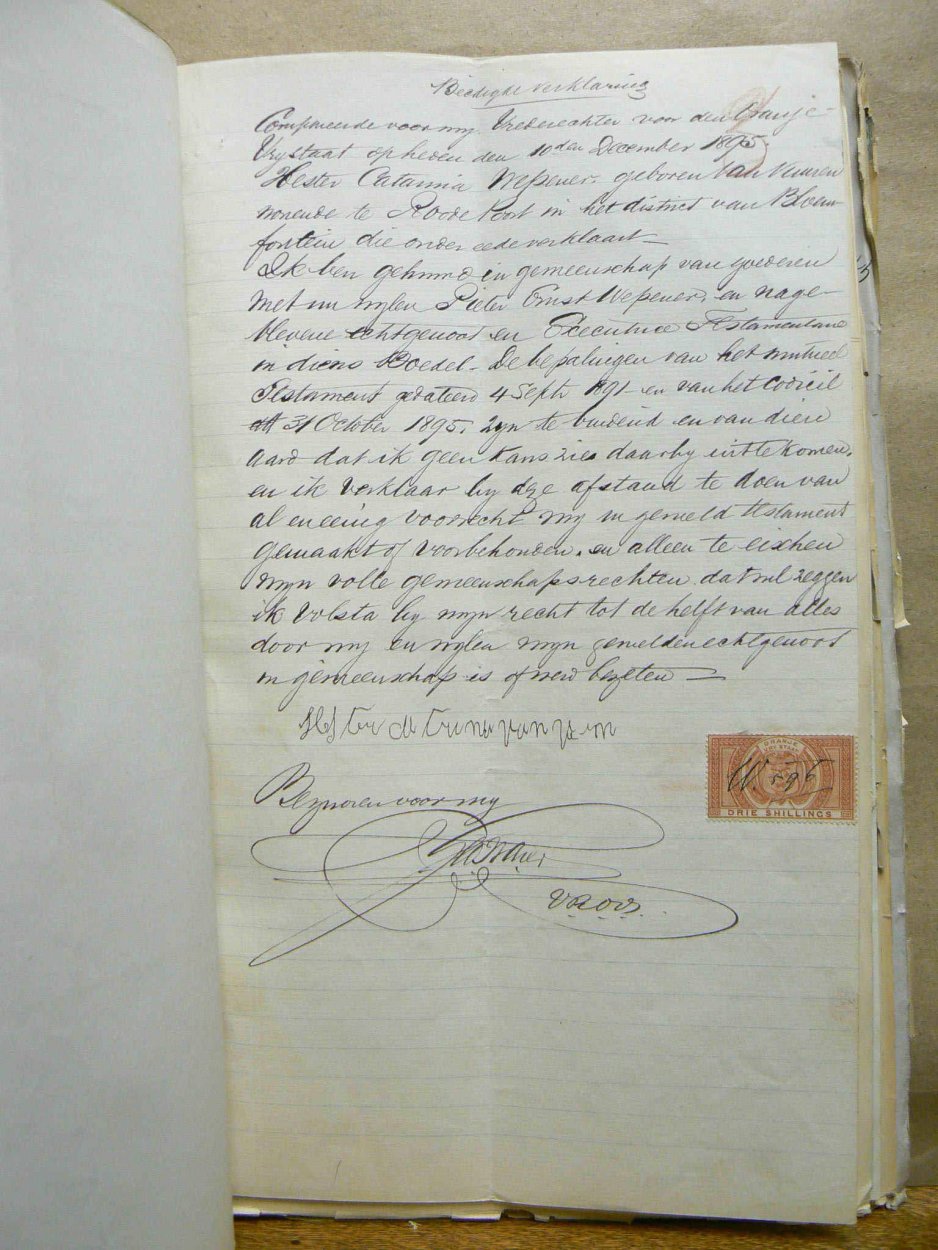 Beëdigde verklaring
Compareerde voor my Vrederechter voor den Oranje-
Vrystaat op heden den 10den December 1895.
Hester Catarina Wepener, geboren Van Vuuren
wonende te Roode Poort in het district van Bloem-
fontein die onder eede verklaart —
Ik ben gehuwd in gemeenschap van goederen
met nu wylen Pieter Ernst Wepener, en nage-
blevene echtgenoot en Executrice Testamentaire
in diens Boedel. De bepalingen van het mutueel
Testament gedateerd 4 Sept 1891 en van het Codicil
31 October 1895, zyn te buidend en van dien
aard dat ik geen kans zies daarby uittekomen,
en ik verklaar by deze afstand te doen van
al en eenig voorrecht my in gemeld testament
gemaakt of voorbehouden, en alleen te eischen
myn volle gemeenschapsrechten dat wil zeggen
ik volsta by myn recht tot de helft van alles
door my en wylen myn gemelden echtgenoot
in gemeenschap is of werd bezeten —
Bezworen voor my
VROVS.
ORANJE VRY STAAT
DRIE SHILLINGS